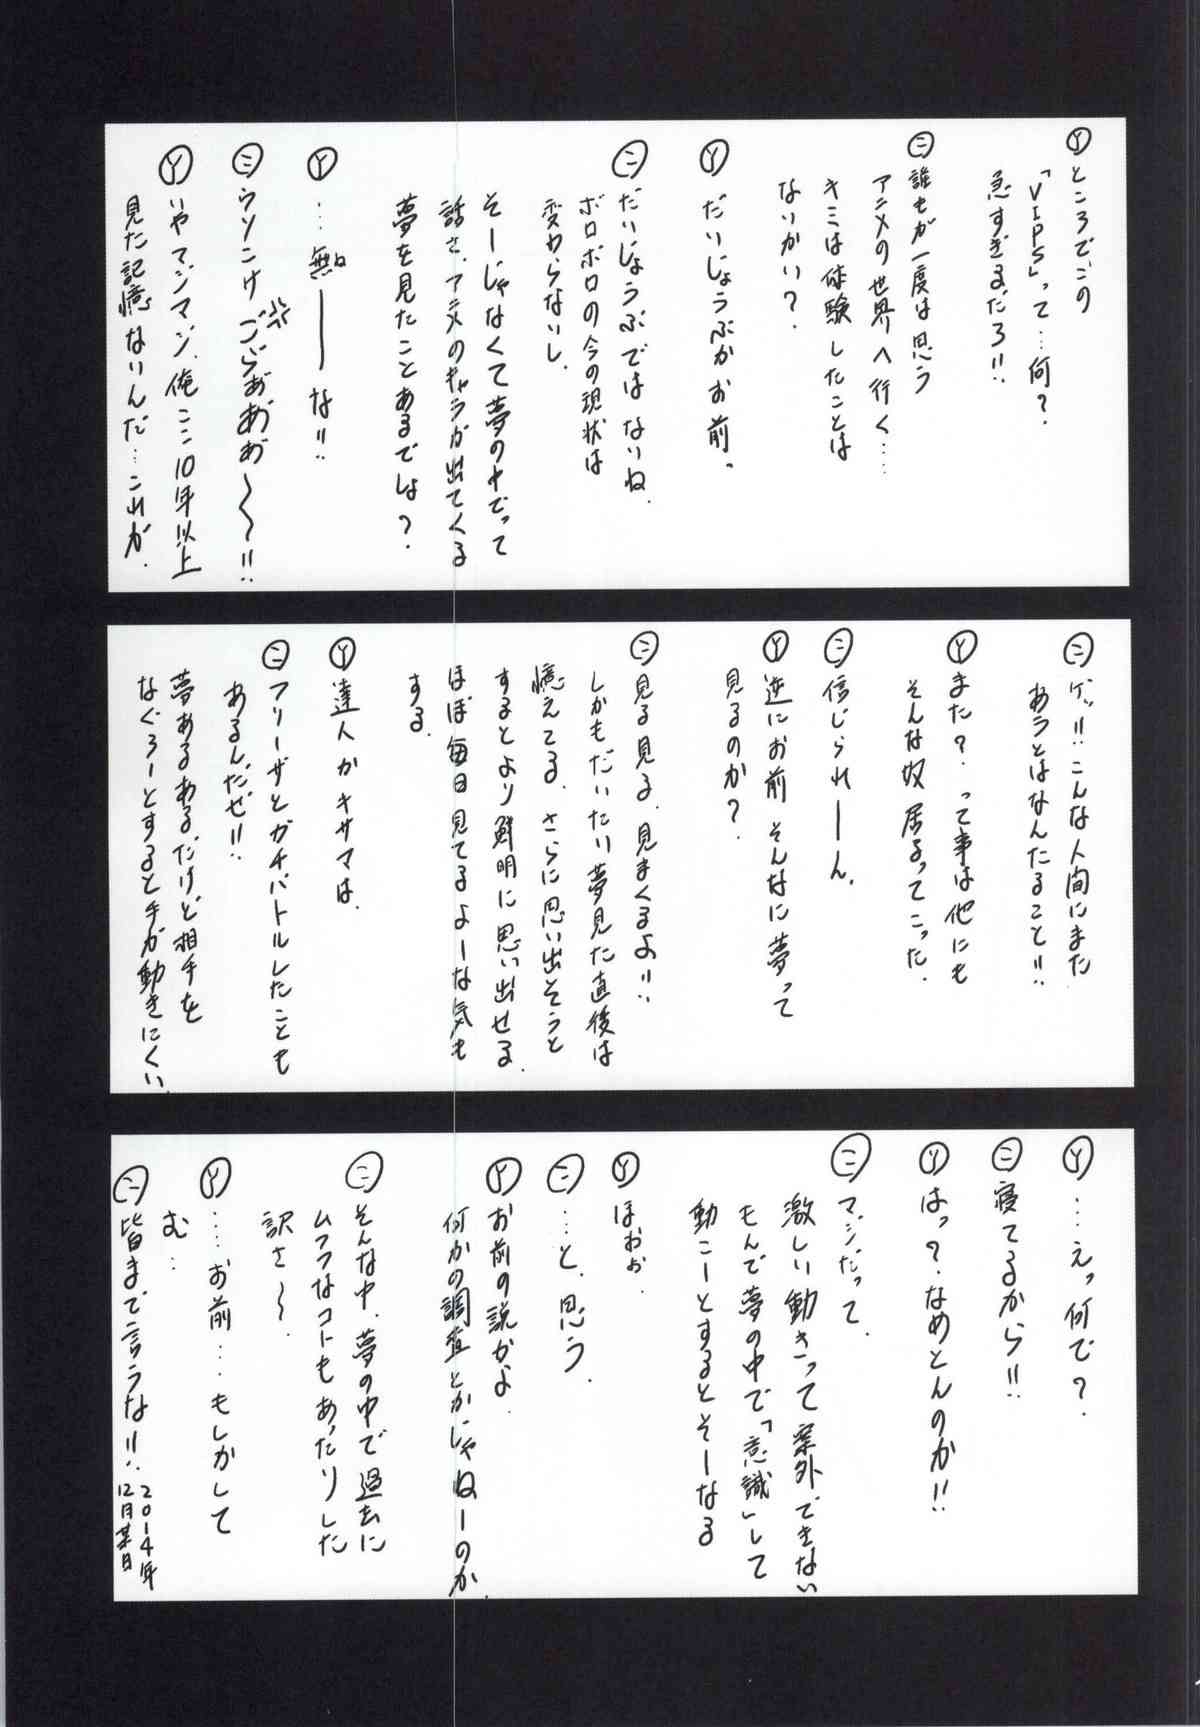 Ⓨところでこの
「VIPS」って…何?
急すぎるだろ!!
㊁誰もが一度は思う
アニメの世界へ行く……
キミは体験したことは
ないかい?
Ⓨだいじょうぶかお前。
㊁だいじょうぶではないね.
ボロボロの今の現状は
変わらないし.
そーじゃなくて夢の中でって
話さ.アニメのキャラが出てくる
夢を見たことあるでしょ?
Ⓨ…無ーーな!!
㊁ウソこけごらぁあぁ〜〜!!
Ⓨいやマジマジ.俺ここ10年以上
見た記憶ないんだ…これが.
㊁ゲッ!!こんな人間にまた
あうとはなんたること!!
Ⓨまた?って事は他にも
そんな奴居るってこった.
㊁信じられーーん.
Ⓨ逆にお前そんなに夢って
見るのか?
㊁見る見る.見まくるよ!!
しかもだいたい夢見た直後は
憶えてる.さらに思い出そうと
するとより鮮明に思い出せる.
ほぼ毎日見てるよーな気も
する.
Ⓨ達人かキサマは.
㊁フリーザとガチバトルしたことも
あるんだぜ!!
夢あるある.だけど相手を
なぐろーとすると手が動きにくい.
Ⓨ…えっ何で?
㊁寝てるから!!
Ⓨは?なめとんのか!!
㊁マジだって.
激しい動きって案外できない
もんで夢の中で「意識」して
動こーとするとそーなる
Ⓨほぉぉ.
㊁…と.思う.
Ⓨお前の説かよ.
何かの調査とかじゃねーのか.
㊁そんな中.夢の中で過去に
ムフフなコトもあったりした
訳さ〜.
Ⓨ…お前…もしかして
む…
㊁皆まで言うな!!.
2014年
12月某日